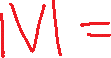 |V| =